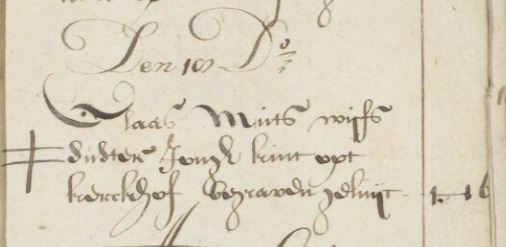 Den 10 Do
Claas Muts wijfs
dochter Jongh kint opt
kerckhof begraven geluijt 1-16